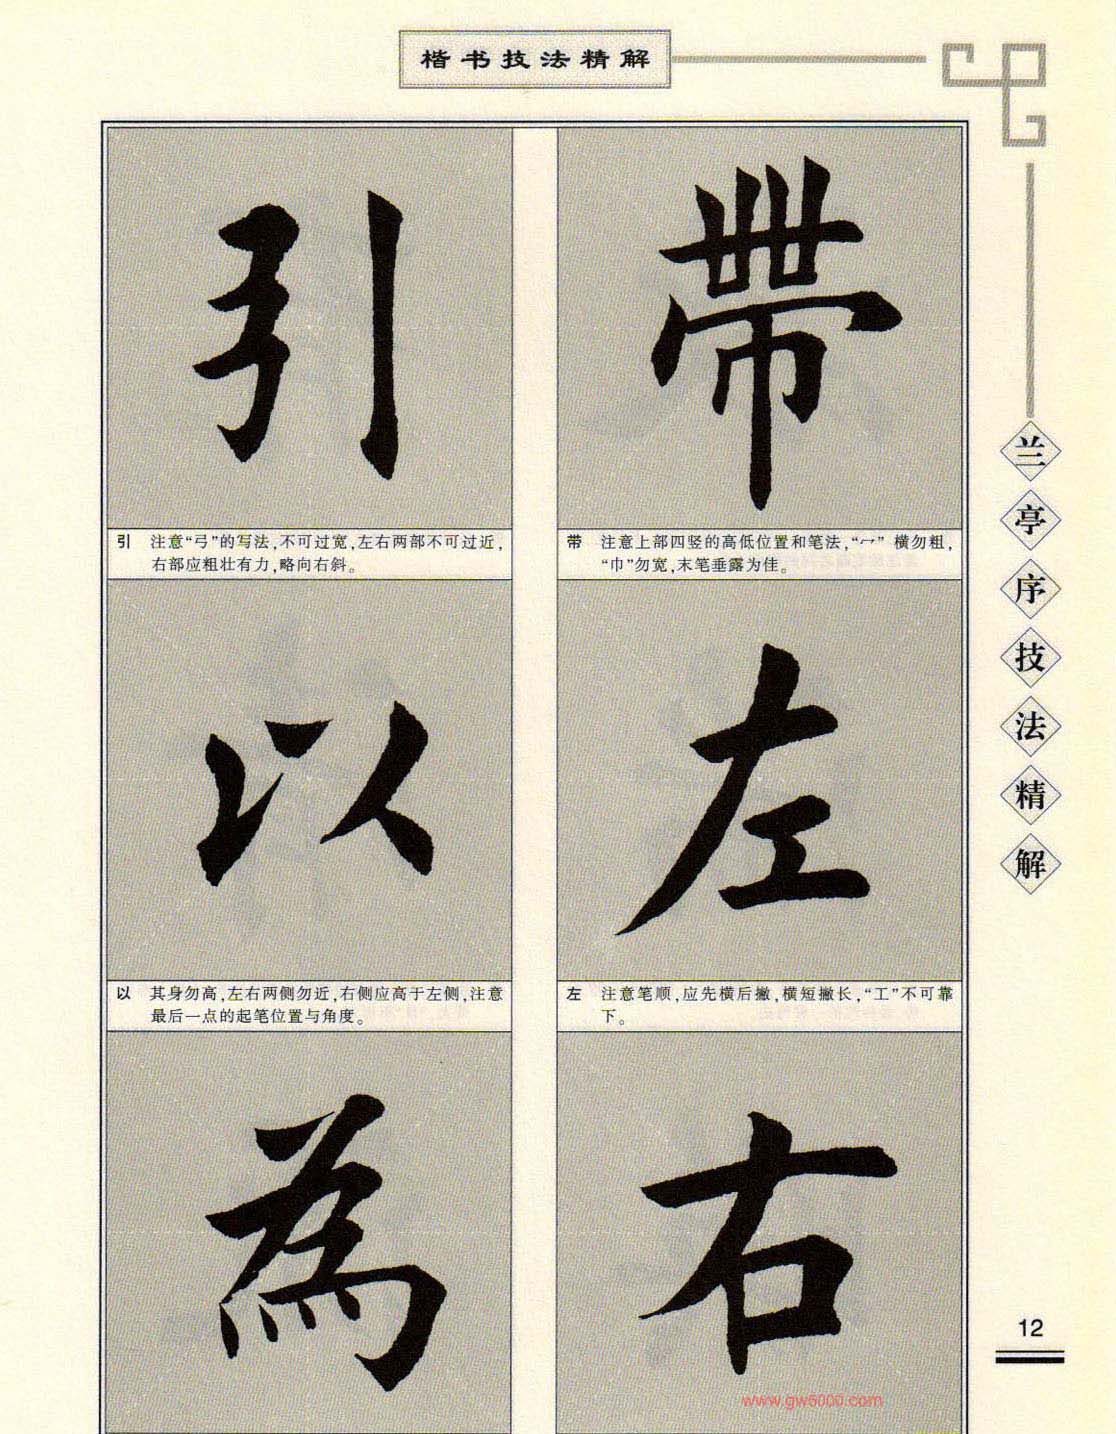 楷书技法精解
带
注意上部四竖的高低位置和笔法,“冖”横勿粗,
“巾”勿宽,末笔垂露为佳。
左
左 注意笔顺,应先横后撇,横短撇长,“工”不可靠
下。
右
引
引 注意“弓”的写法,不可过宽,左右两部不可过近,
右部应粗壮有力,略向右斜。
以
以 其身勿高,左右两侧勿近,右侧应高于左侧,注意
最后一点的起笔位置与角度。
為
兰亭序技法精解
12
www.gw5000.com